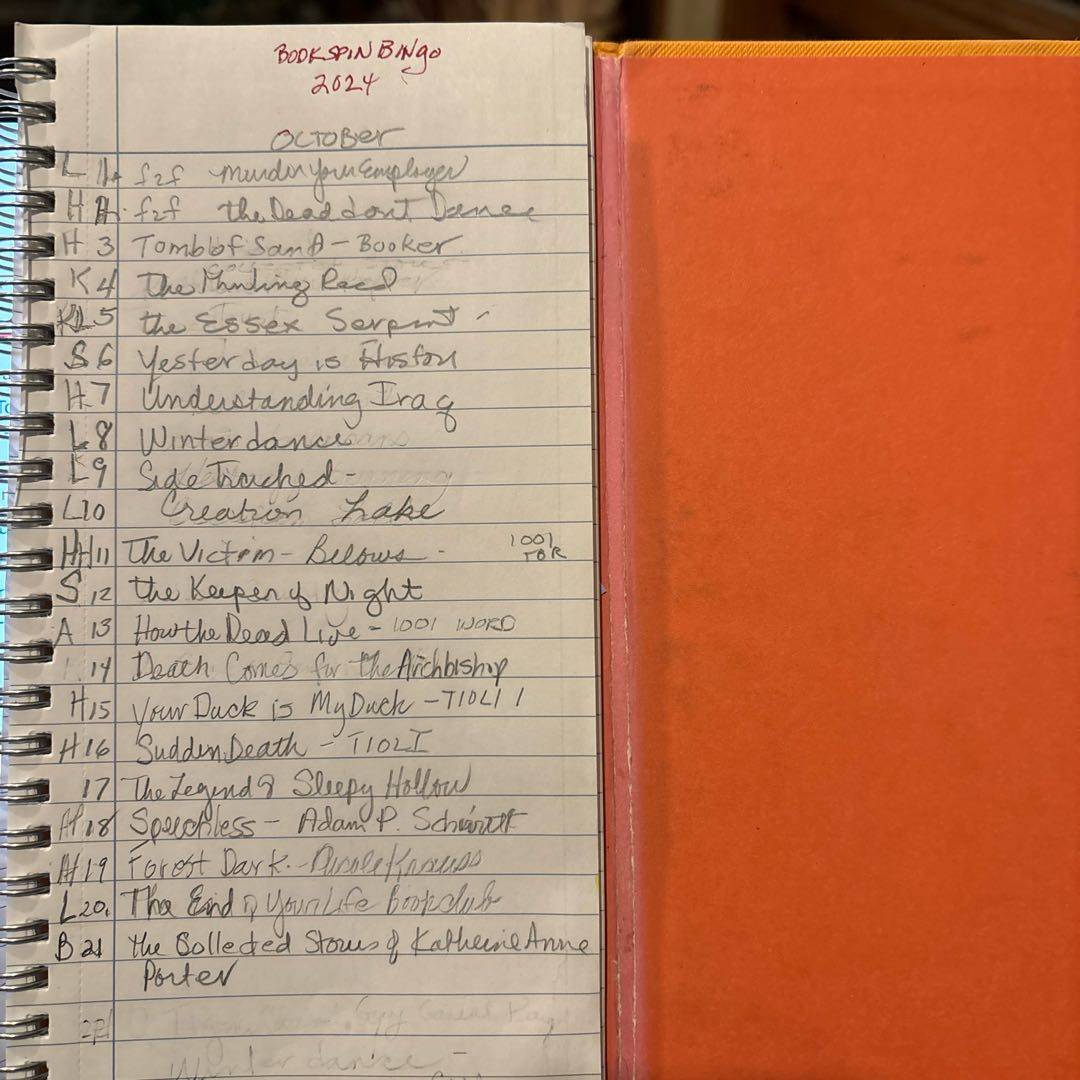 BOOKSPINBINGO
2024
OCTOBER
L 1. f2f Murder Your Employer
H f2f the Dead dont Dance
H 3 Tomb of Sand - Booker
K 4 The
5 the Essex Serpent -
S 6 Yesterday is History
H 7 Understanding Iraq
L 8 Winterdance
L 9 Side Tracked -
L 10 Creation Lake
H 11 The Victim - Bellows - 1001 TBR
S 12 the Keeper of Night
A 13 How the Dead Live - 1001 WORD
14 Death Comes for the Archbishop
H 15 Your Duck is My Duck - TIOLI 1
H 16 Sudden Death - TIOLI
17 The Legend of Sleepy Hollow
18 Speechless - Adam P. Schmitt
19 Forest Dark - Nicole Krauss
L 20. The End of Your Life Bookclub
B 21 the Collected Stories of Katherine Anne
Porter
Winterdance -